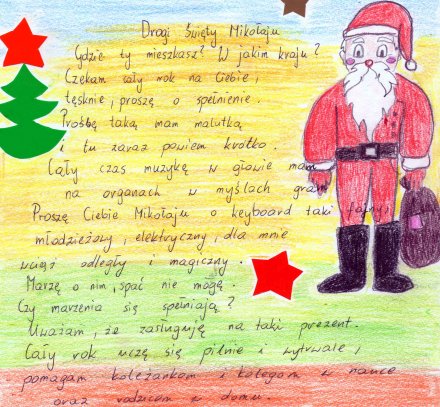 Drogi Święty Mikołaju
Gdzie ty mieszkasz? W jakim kraju?
Czekam cały rok na Ciebie,
tęsknię, proszę o spełnienie.
Prośbę taką mam malutką
i tu zaraz powiem krótko.
Cały czas muzykę w głowie mam
na organach w myślach gram
Proszę Ciebie Mikołaju o keyboard taki fajny,
młodzieżowy, elektryczny, dla mnie
wciąż odległy i magiczny.
Marzę o nim, spać nie mogę.
Czy marzenia się spełniają?
Uważam, że zasługuję na taki prezent.
Cały rok uczę się pilnie i wytrwale,
pomagam koleżankom i kolegom w nauce
oraz rodzicom w domu.